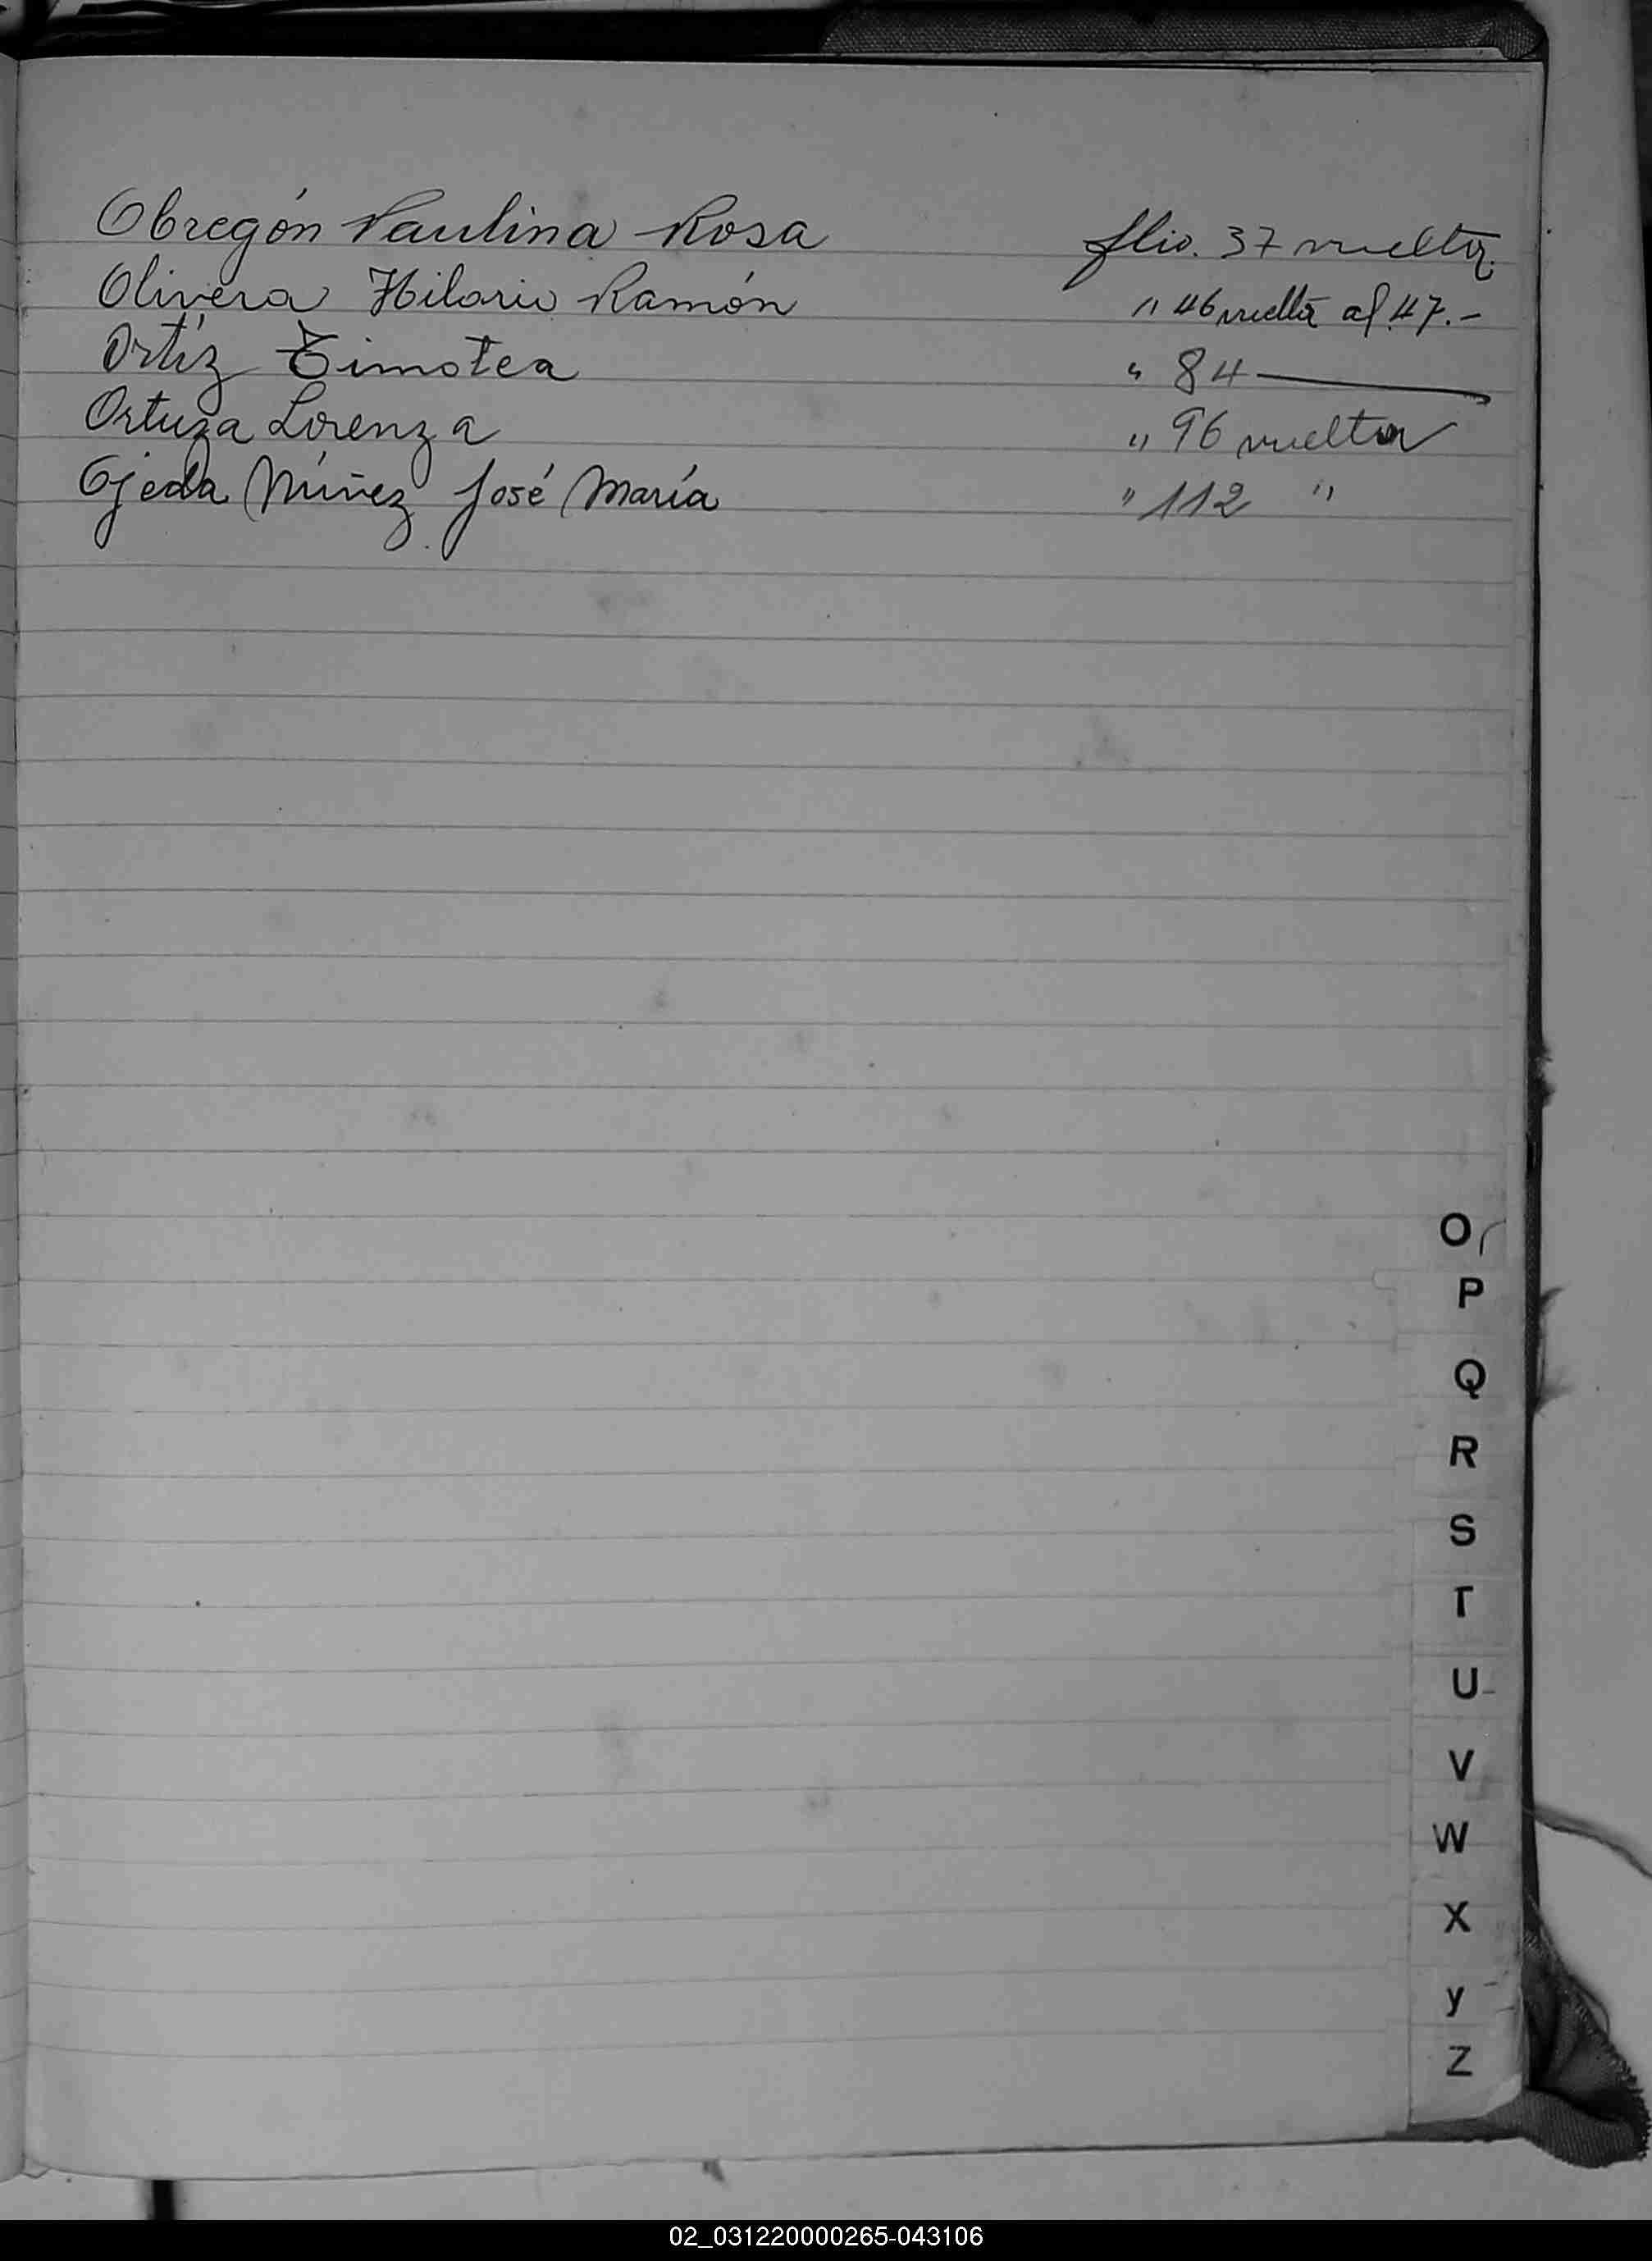 Obregón Paulina Rosa flio. 37 vuelta.
Olivera Hilario Ramón " 46 vuelta al 47.-
Ortíz Timotea " 84 —
Ortuza Lorenza " 96 vuelta
Ojeda Núñez José María " 112 "
O
P
Q
R
S
T
U
V
W
X
y
Z
02_031220000265-043106